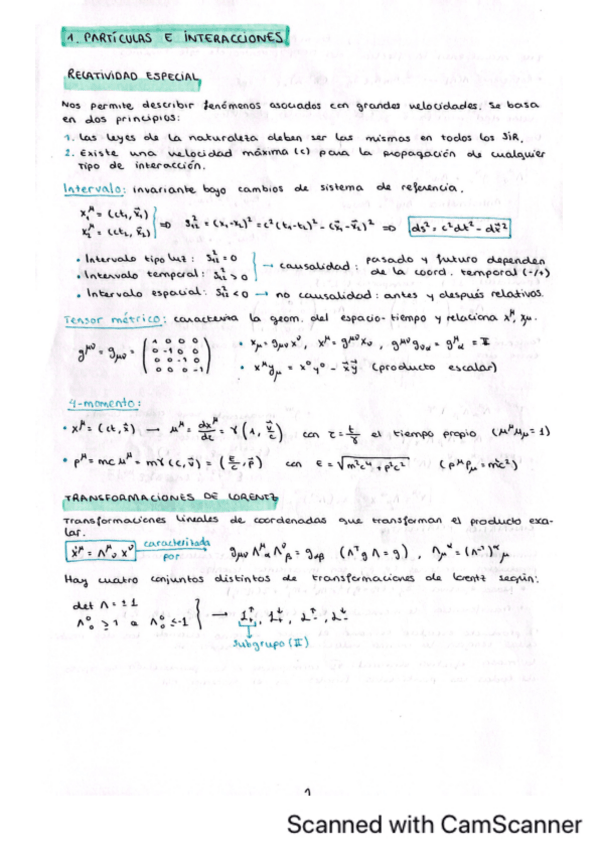 1. PARTÍCULAS E INTERACCIONES
RELATIVIDAD ESPECIAL
Nos permite describir fenómenos asociados con grandes velocidades. Se basa
en dos principios:
1. Las leyes de la naturaleza deben ser las mismas en todos los SIR.
2. Existe una velocidad máxima (c) para la propagación de cualquier
tipo de interacción.
Intervalo: invariante bajo cambios de sistema de referencia.
x₁^μ = (ct₁, x⃗₁)
x₂^μ = (ct₂, x⃗₂) } ⇒ s₁₂² = (x₁-x₂)² = c²(t₁-t₂)² - (x⃗₁-x⃗₂)² ⇒ ds² = c²dt² - dx⃗²
• Intervalo tipo luz: s₁₂² = 0
• Intervalo temporal: s₁₂² > 0 } → causalidad: pasado y futuro dependen
de la coord. temporal (-/+)
• Intervalo espacial: s₁₂² < 0 → no causalidad: antes y después relativos.
Tensor métrico: caracteriza la geom. del espacio-tiempo y relaciona x^μ, x_μ.
g^μν = g_μν = (1 0 0 0
0 -1 0 0
0 0 -1 0
0 0 0 -1)
• x_μ = g_μν x^ν, x^μ = g^μν x_ν, g^μν g_να = g^μ_α = I
• x^μ y_μ = x⁰y⁰ - x⃗y⃗ (producto escalar)
4-momento:
• x^μ = (ct, x⃗) → u^μ = dx^μ/dτ = γ(1, v⃗/c) con τ = t/γ el tiempo propio (u^μ u_μ = 1)
• p^μ = mc u^μ = mγ(c, v⃗) = (E/c, p⃗) con E = √(m²c⁴ + p²c²) (p^μ p_μ = m²c²)
TRANSFORMACIONES DE LORENTZ
Transformaciones lineales de coordenadas que transforman el producto esca-
lar.
x̃^μ = Λ^μ_ν x^ν caracterizada por g_μν Λ^μ_α Λ^ν_β = g_αβ (Λ^T g Λ = g), Λ_μ^α = (Λ⁻¹)^α_μ
Hay cuatro conjuntos distintos de transformaciones de Lorentz según:
det Λ = ±1
Λ⁰₀ ≥ 1 o Λ⁰₀ ≤ -1 }
subgrupo (I)
1
Scanned with CamScanner